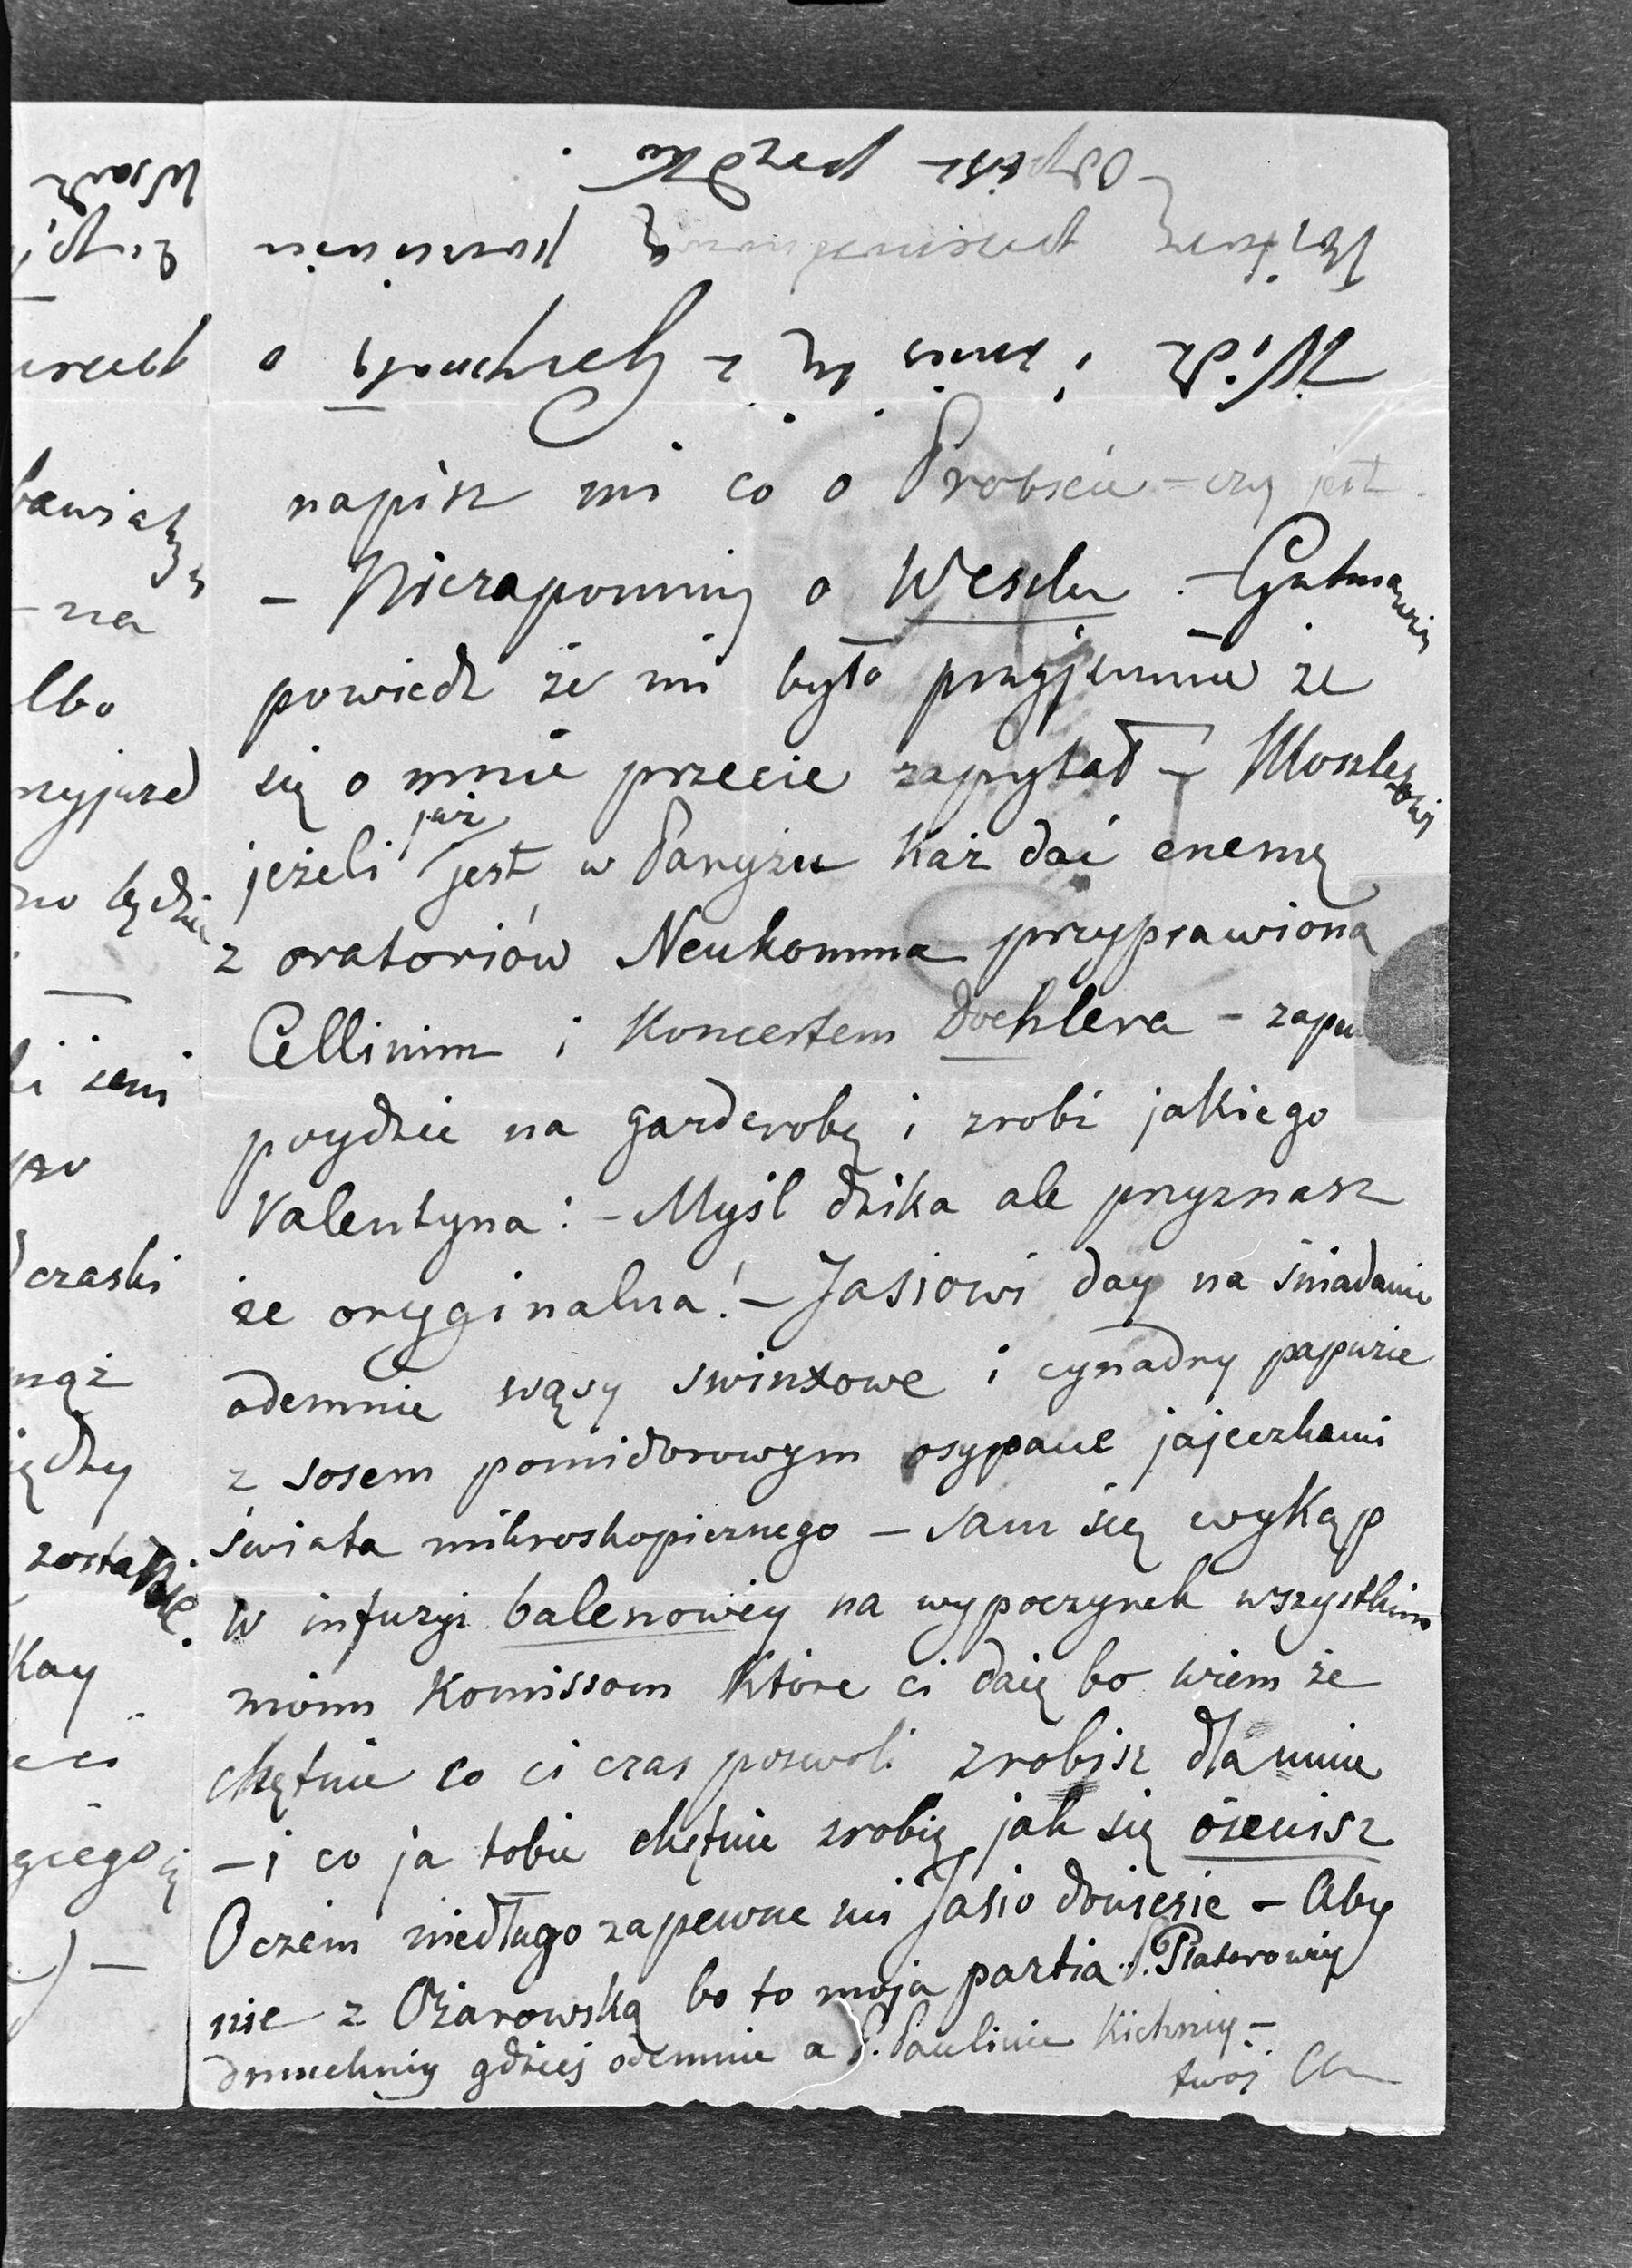 Widz i znies się z Grzymałą o
Książkę
Odpisz prędko
napisz mi co o Probście – czy jest
– Niezapomnij o Weselu. – Gutmanowi
powiedz że mi było przyjemnie że
się o mnie przecie zapytał – Moszlesowi
jeżeli już jest w Paryżu każ dać enemę
z oratoriów Neukomma przyprawioną
Cellinim i Koncertem Doehlera –
poydzie na garderobę i zrobi jakiego
Valentyna: – Myśl dzika ale przyznasz
że oryginalna! – Jasiowi day na śniadanie
odemnie wąsy swinxowe i cynadry papuzie
z sosem pomidorowym osypane jajeczkami
świata mikroskopicznego – sam się wykąp
w infuzyi balenowey na wypoczynek wszystkim
moim Komissom które ci daię bo wiem że
chętnie co ci czas pozwoli zrobisz dla mnie
– i co ja tobie chętnie zrobię jak się ożenisz
O czem niedługo zapewne mi Jasio doniesie – Aby
nie z Ożarowską bo to moja partia. P. Platerowey
dmuchniy gdzieś odemnie a P. Paulinie Kichniy –
twój Ch
bawią
– na
lbo
zyjazd
no będzie
żeni
czaski
mąż
iędzy
zostanie
Kay
giego